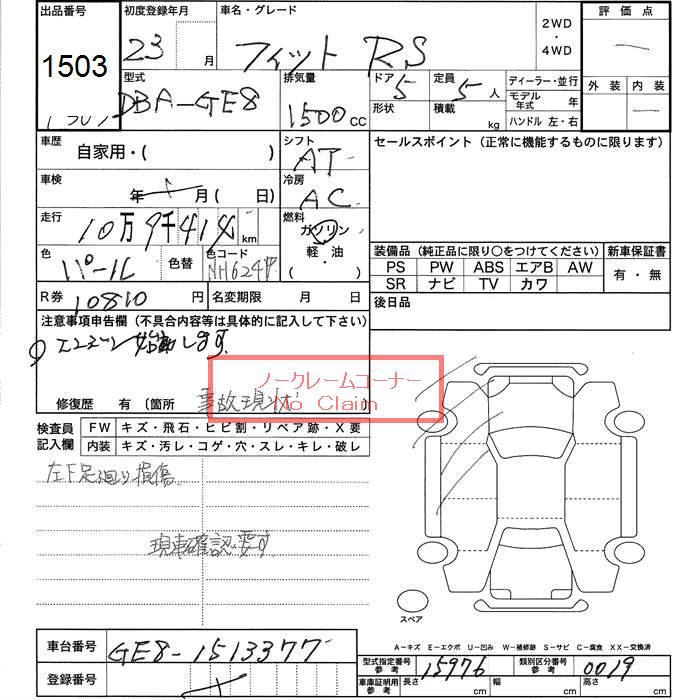 出品番号 初度登録年月 車名・グレード 2WD ・ 4WD 評価点
1503 23 月 フィット RS
外装 内装
型式 排気量 ドア 5 定員 5 人 ディーラー・並行
DBA-GE8 1500 cc 形状 積載 kg モデル年式 年
ハンドル 左・右
車歴 自家用・( ) シフト AT セールスポイント (正常に機能するものに限ります)
車検 年 月 ( 日) 冷房 AC
走行 10万9千414 km 燃料 ガソリン 軽油 ・ ( )
色 パール 色替 色コード NH624P
装備品 (純正品に限り○をつけてください) 新車保証書
PS PW ABS エアB AW 有・無
SR ナビ TV カワ
R券 10810 円 名変期限 月 日 後日品
注意事項申告欄 (不具合内容等は具体的に記入して下さい)
エンジン始動します
ノークレームコーナー
No Claim
修復歴 有 〔箇所 事故現状
検査員記入欄 FW キズ・飛石・ヒビ割・リペア跡・X要
内装 キズ・汚レ・コゲ・穴・スレ・キレ・破レ
左下足廻り損傷
現車確認要す
スペア
A-キズ E-エクボ U-凹み W-補修跡 S-サビ C-腐食 XX-交換済
車台番号 GE8-1513377 型式指定番号 参考 15976 類別区分番号 参考 0019
登録番号 車庫証明用 参考 長さ cm 幅 cm 高さ cm